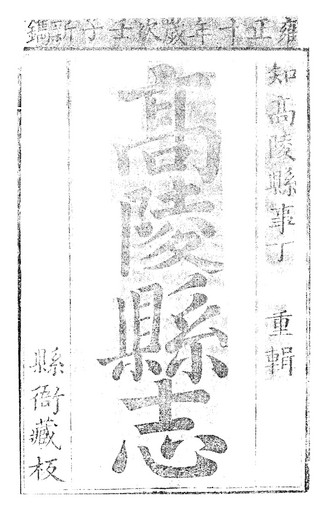 雍正十年歲次壬子新鐫
知高陵縣事丁 重輯
高陵縣志
縣衙藏板